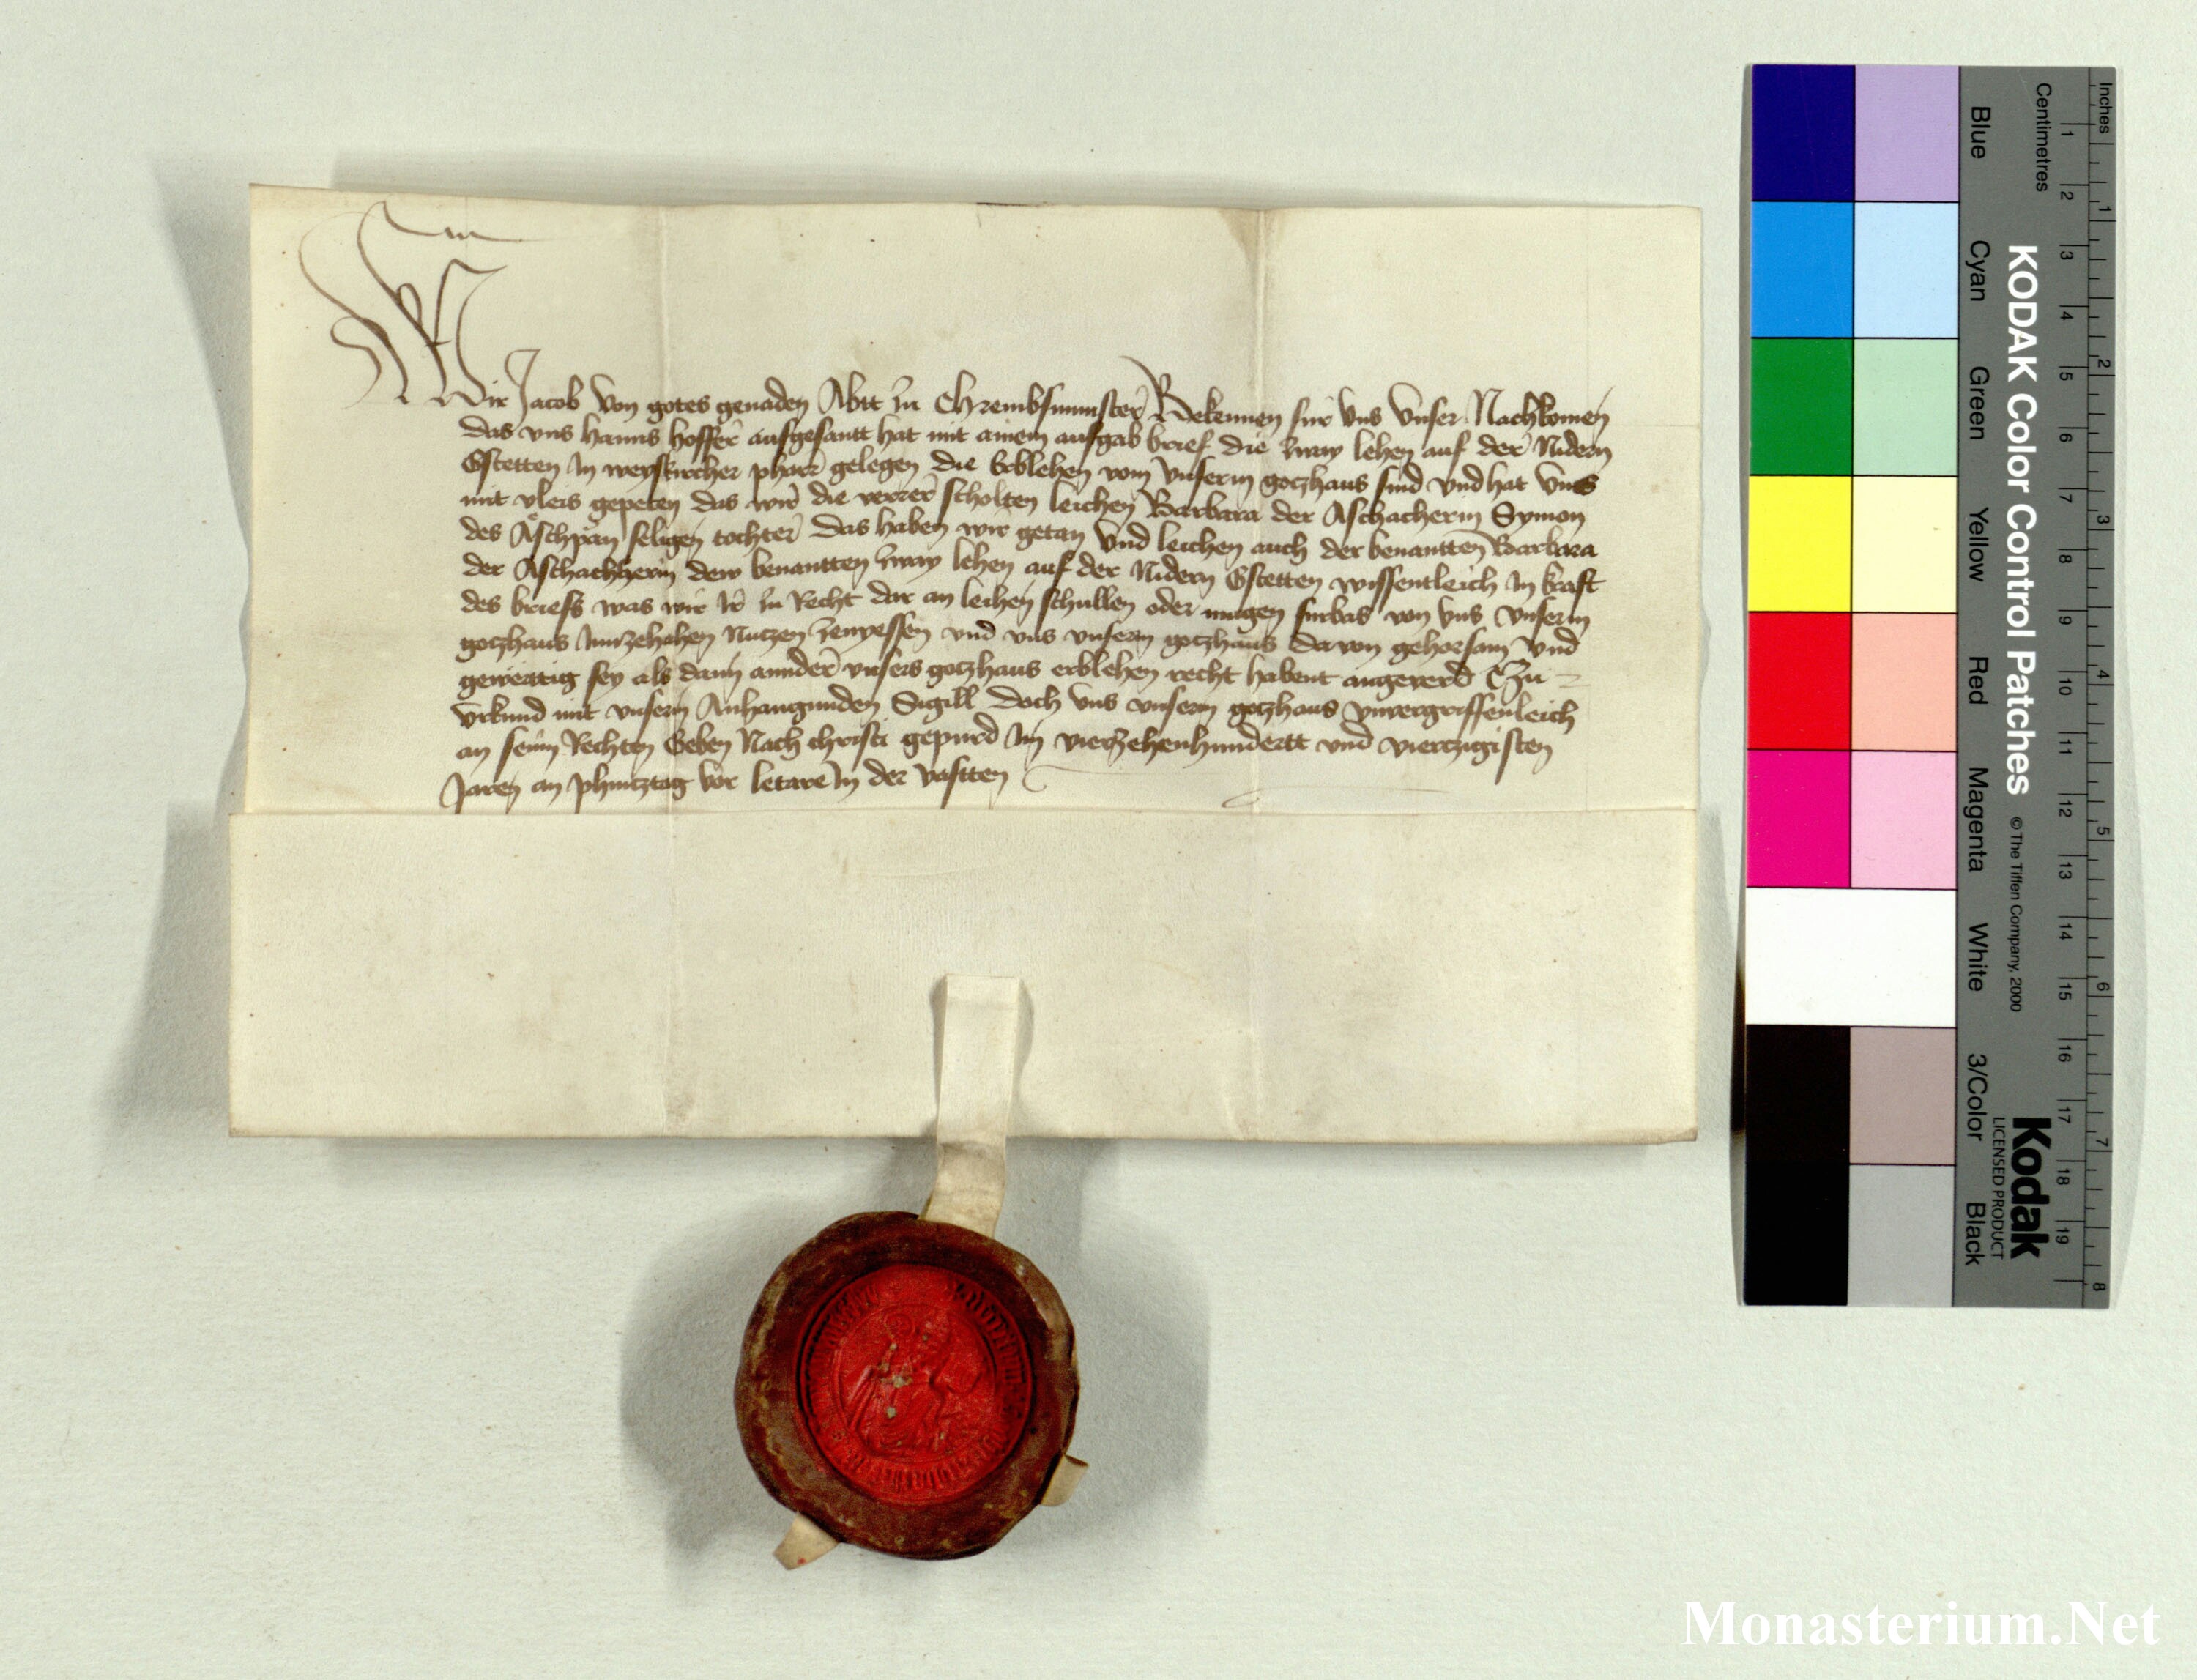 Wir Jacob von gotes genaden Abtt zu Chrembsmunster Bekennen fur vns vnser Nachkomen
das vns Hanns Hoffer aufgesantt hat mit ainem aufgab brief die zway lehen auf der Nidern
Gstetten in weyskircher pharr gelegen die Erblehen vom vnserm gotzhaus sind vnd hat vnns
mit vleis gepeten das wir die verrer scholten leichen Barbara der Aschacherin Symon
des Aschpan seligen tochter das haben wir getan vnd leichen auch der benantten Barbara
der Aschachherin dew benantten zway lehen auf der Nidern Gstetten wissentleich in kraft
des briefs was wir Ir zu Recht dar an leihen schullen oder mugen furbas von vns vnserm
gotzhaus Innzehaben Nutzen zenyessen vnd vns vnserm gotzhaus da von gehorsam vnd
gewerttig sey als dann annder vnsers gotzhaus erblehen recht habent angeverd Czu
vrkund mit vnserm Anhangunden Sigill doch vns vnserm gotzhaus vnvergriffenleich
an seinn Rechten Geben Nach christi gepurd Im vierzehenhundertt vnd viertzigisten
Jaren an phintztag vor letare In der vastten
Blue
Cyan
Green
Yellow
Red
Magenta
White
3/Color
Black
KODAK Color Control Patches
© The Tiffen Company, 2000
Kodak
LICENSED PRODUCT
Centimetres
1 2 3 4 5 6 7 8 9 10 11 12 13 14 15 16 17 18 19
Inches
1 2 3 4 5 6 7 8
Monasterium.Net